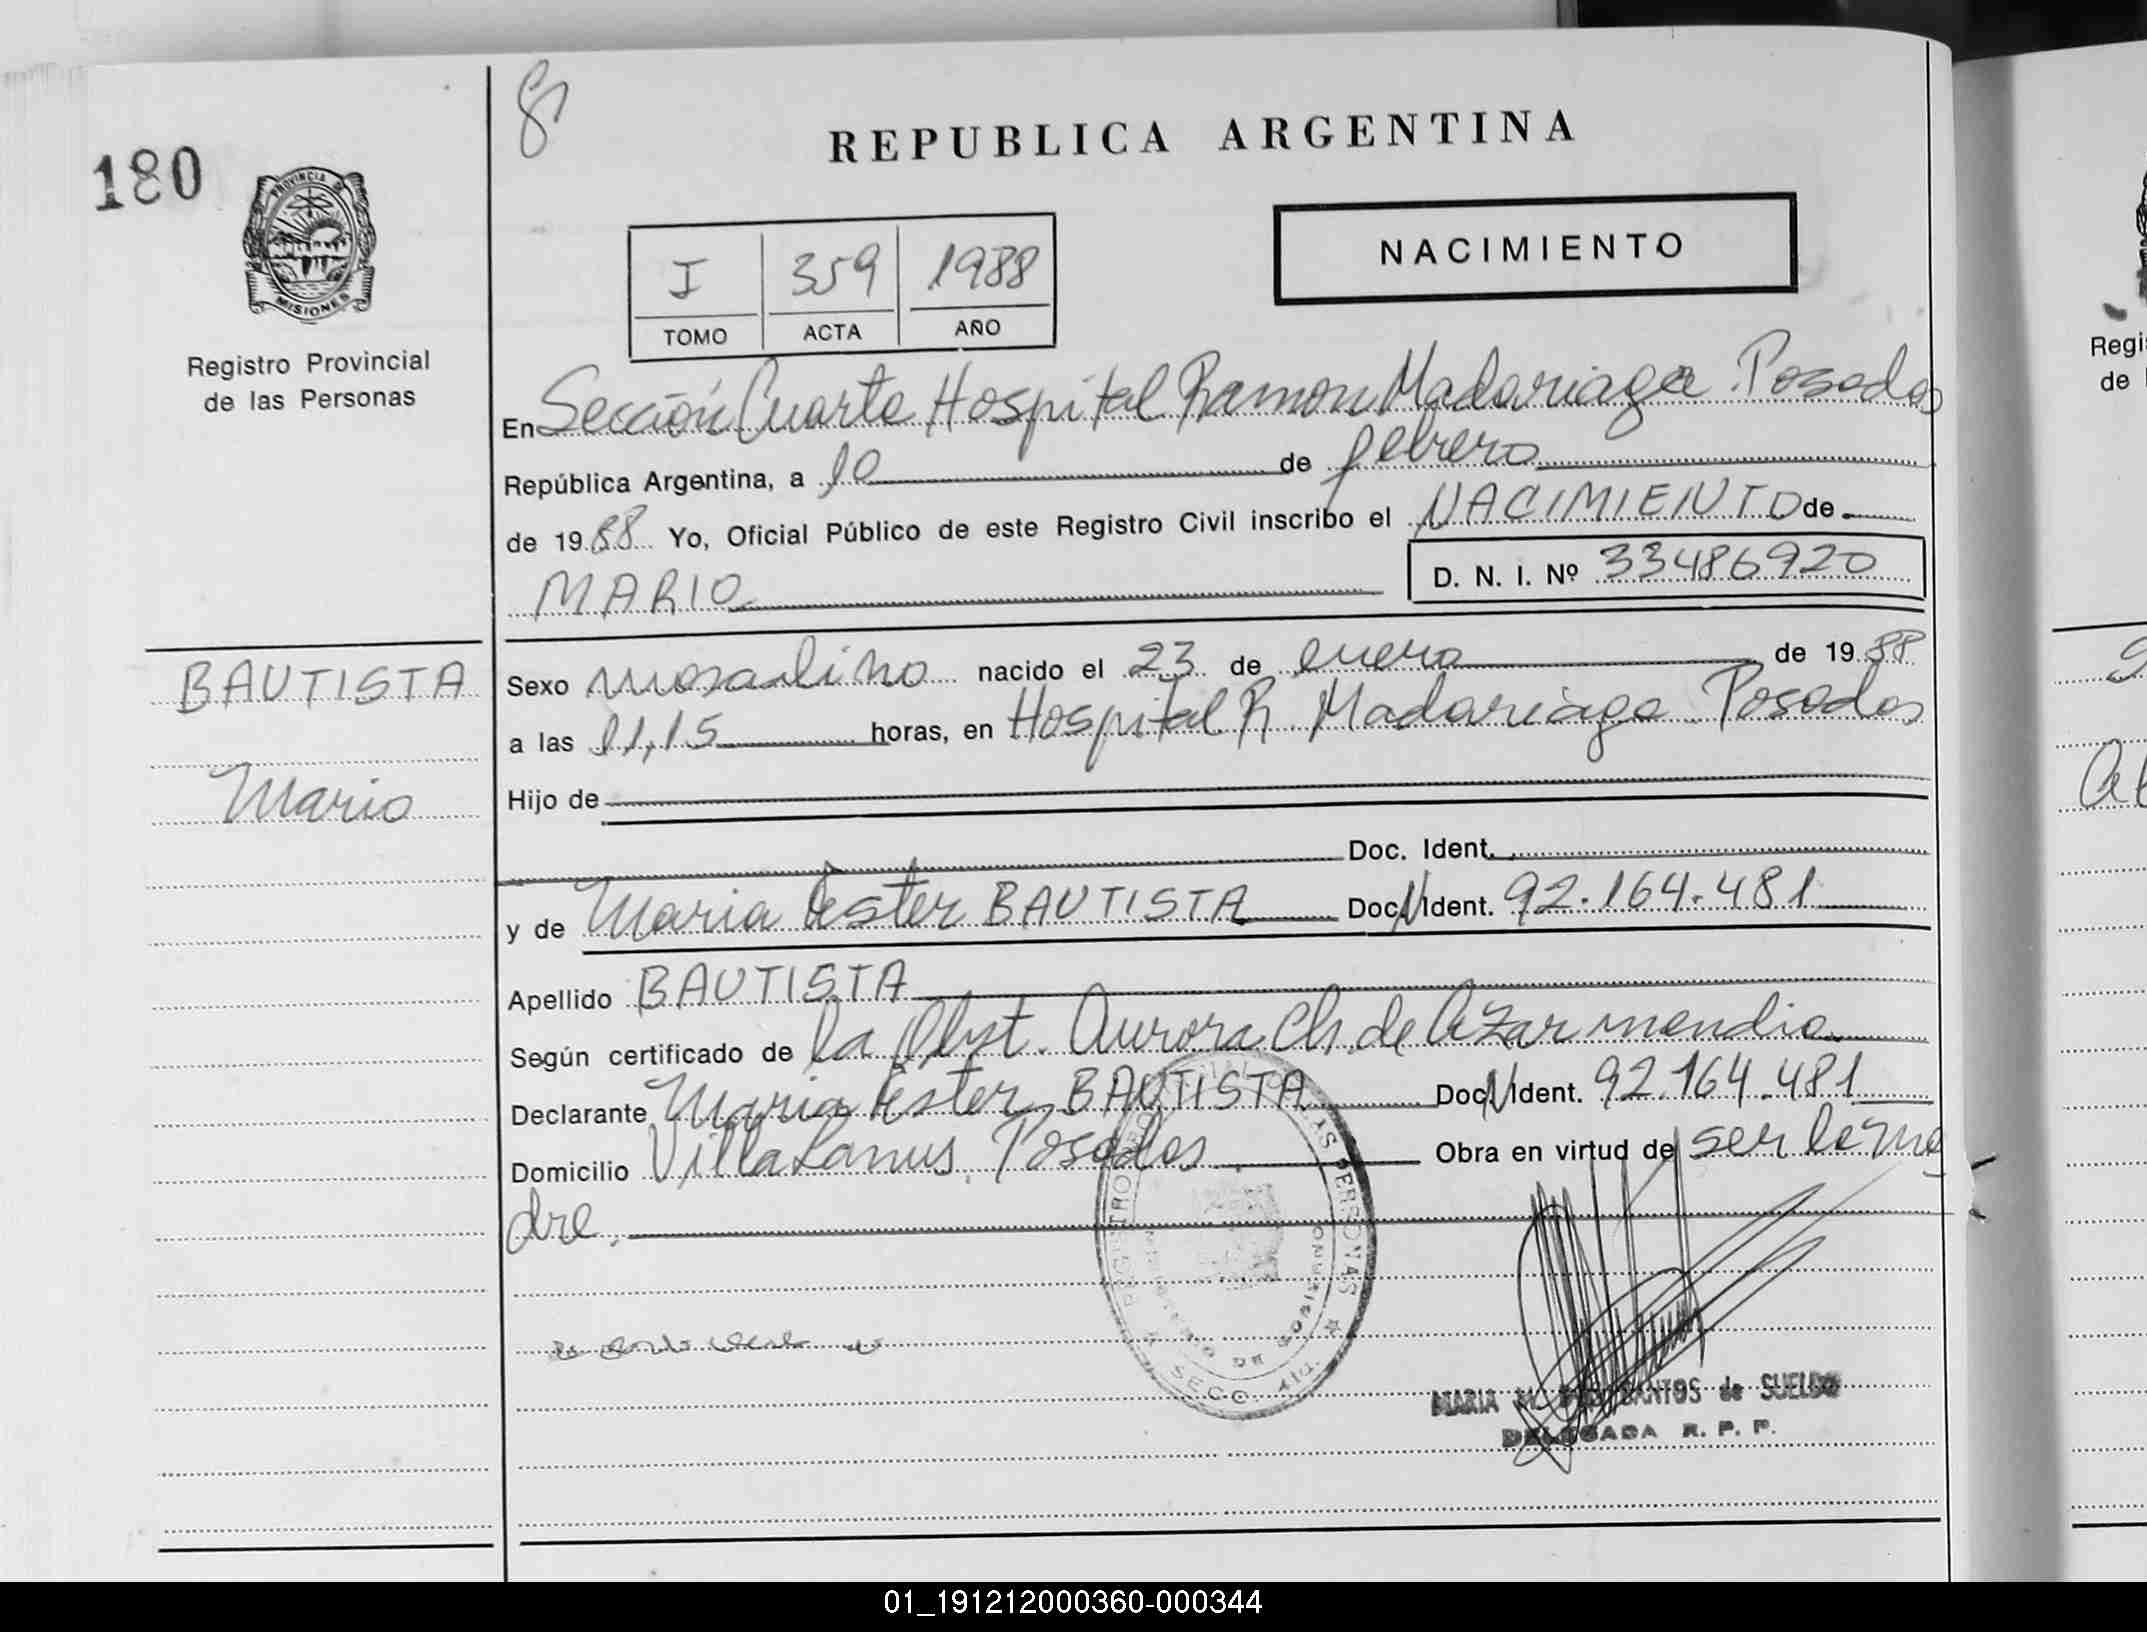 8
REPUBLICA ARGENTINA
180
PROVINCIA DE
MISIONES
Registro Provincial
de las Personas
NACIMIENTO
I 359 1988
TOMO ACTA AÑO
En Sección Cuarta Hospital Ramon Madariaga Posadas
República Argentina, a 10 de febrero
de 1988 Yo, Oficial Público de este Registro Civil inscribo el NACIMIENTO de
MARIO D. N. I. Nº 33486920
BAUTISTA
Mario
Sexo masculino nacido el 23 de enero de 1988
a las 11,15 horas, en Hospital R. Madariaga Posadas
Hijo de
Doc. Ident.
y de Maria Ester BAUTISTA Doc. N Ident. 92.164.481
Apellido BAUTISTA
Según certificado de la Obst. Aurora Ch. de Azarmendia
Declarante Maria Ester BAUTISTA Doc. N Ident. 92.164.481
Domicilio Villa Lanus, Posadas. Obra en virtud de ser la ma
dre.
REGISTRO PERSONAS
SECC. MISIONES
MARIA M. SANTOS de SUELDO
DELEGADA R. P. P.
Regi
de
01_191212000360-000344